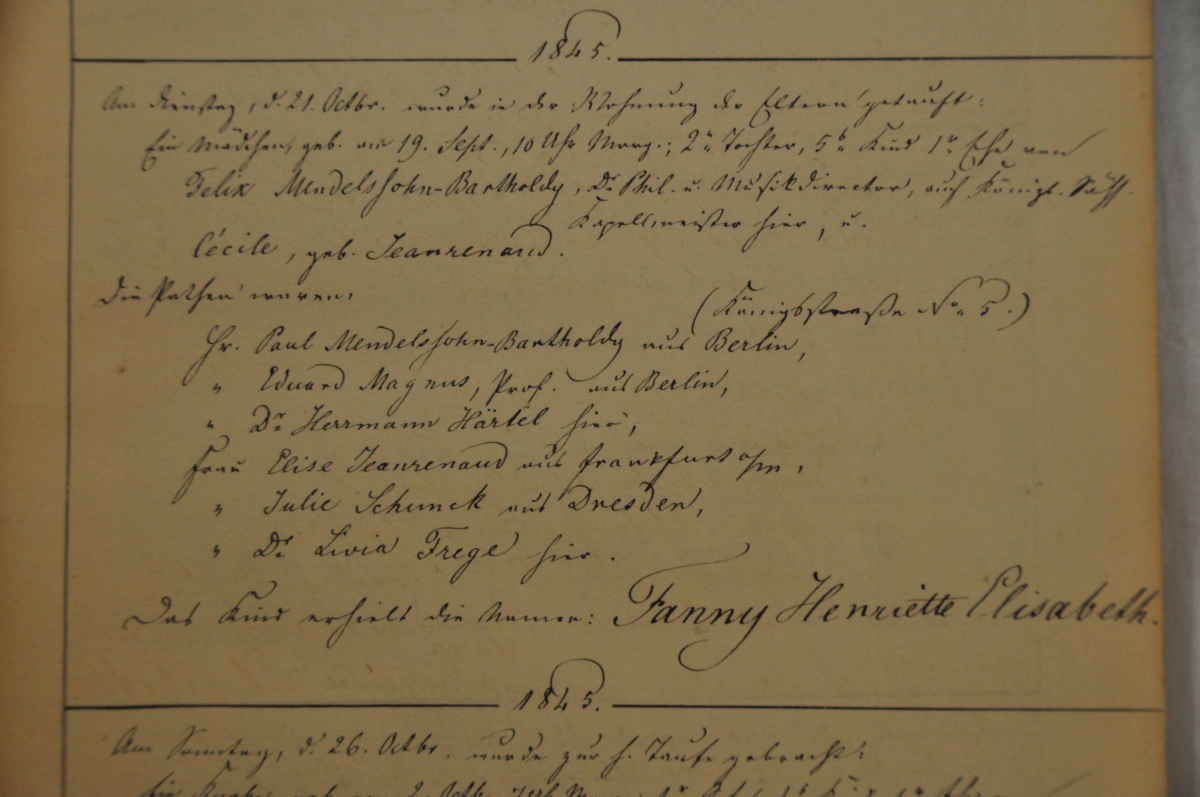 1845.
Am Dienstag, d. 21. Octbr. wurde in der Wohnung der Eltern getauft:
Ein Mädchen, geb. am 19. Sept., 10 Uhr Morg.; 2te Tochter, 5tes Kind 1r Ehe von
Felix Mendelssohn-Bartholdy, Dr. Phil. u. Musikdirector, auch Königl. Sächs.
Kapellmeister hier, u.
Cécile, geb. Jeanrenaud.
Die Pathen waren:
(Königsstraße No 5.)
Hr. Paul Mendelssohn-Bartholdy aus Berlin,
" Eduard Magnus, Prof. aus Berlin,
" Dr Herrmann Härtel hier,
Frau Elise Jeanrenaud aus Frankfurt a/m,
" Julie Schunck aus Dresden,
" Dr Livia Frege hier.
Das Kind erhielt die Namen: Fanny Henriette Elisabeth.
1845.
Am Sonntag, d. 26. Octbr. wurde zur h. Taufe gebracht:
Ein Knabe, geb. am 2. Octbr.